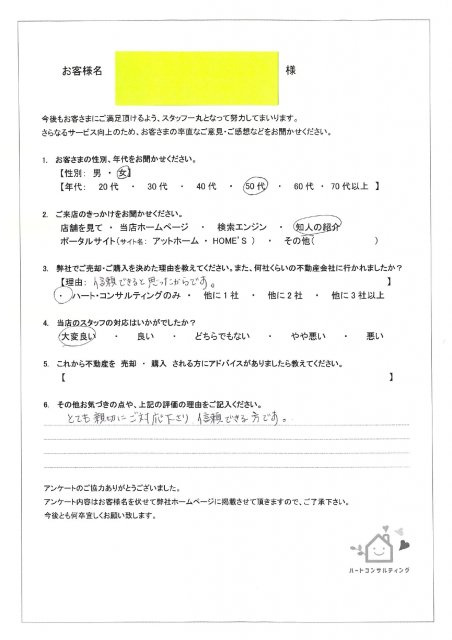 お客様名 様
今後もお客さまにご満足頂けるよう、スタッフ一丸となって努力してまいります。
さらなるサービス向上のため、お客さまの率直なご意見・ご感想などをお聞かせください。
1. お客さまの性別、年代をお聞かせください。
【性別: 男 ・ 女】
【年代: 20代 ・ 30代 ・ 40代 ・ 50代 ・ 60代 ・ 70代以上 】
2. ご来店のきっかけをお聞かせください。
店舗を見て ・ 当店ホームページ ・ 検索エンジン ・ 知人の紹介
ポータルサイト(サイト名: アットホーム ・ HOME'S ) ・ その他( )
3. 弊社でご売却・ご購入を決めた理由を教えてください。また、何社くらいの不動産会社に行かれましたか?
【理由: 信頼できると思ったからです。 】
・ ハート・コンサルティングのみ ・ 他に1社 ・ 他に2社 ・ 他に3社以上
4. 当店のスタッフの対応はいかがでしたか?
大変良い ・ 良い ・ どちらでもない ・ やや悪い ・ 悪い
5. これから不動産を 売却 ・ 購入 される方にアドバイスがありましたら教えてください。
【 】
6. その他お気づきの点や、上記の評価の理由をご記入ください。
とても親切にご対応下さり 信頼できる方です。
アンケートのご協力ありがとうございました。
アンケート内容はお客様名を伏せて弊社ホームページに掲載させて頂きますので、ご了承下さい。
今後とも何卒宜しくお願い致します。
ハートコンサルティング